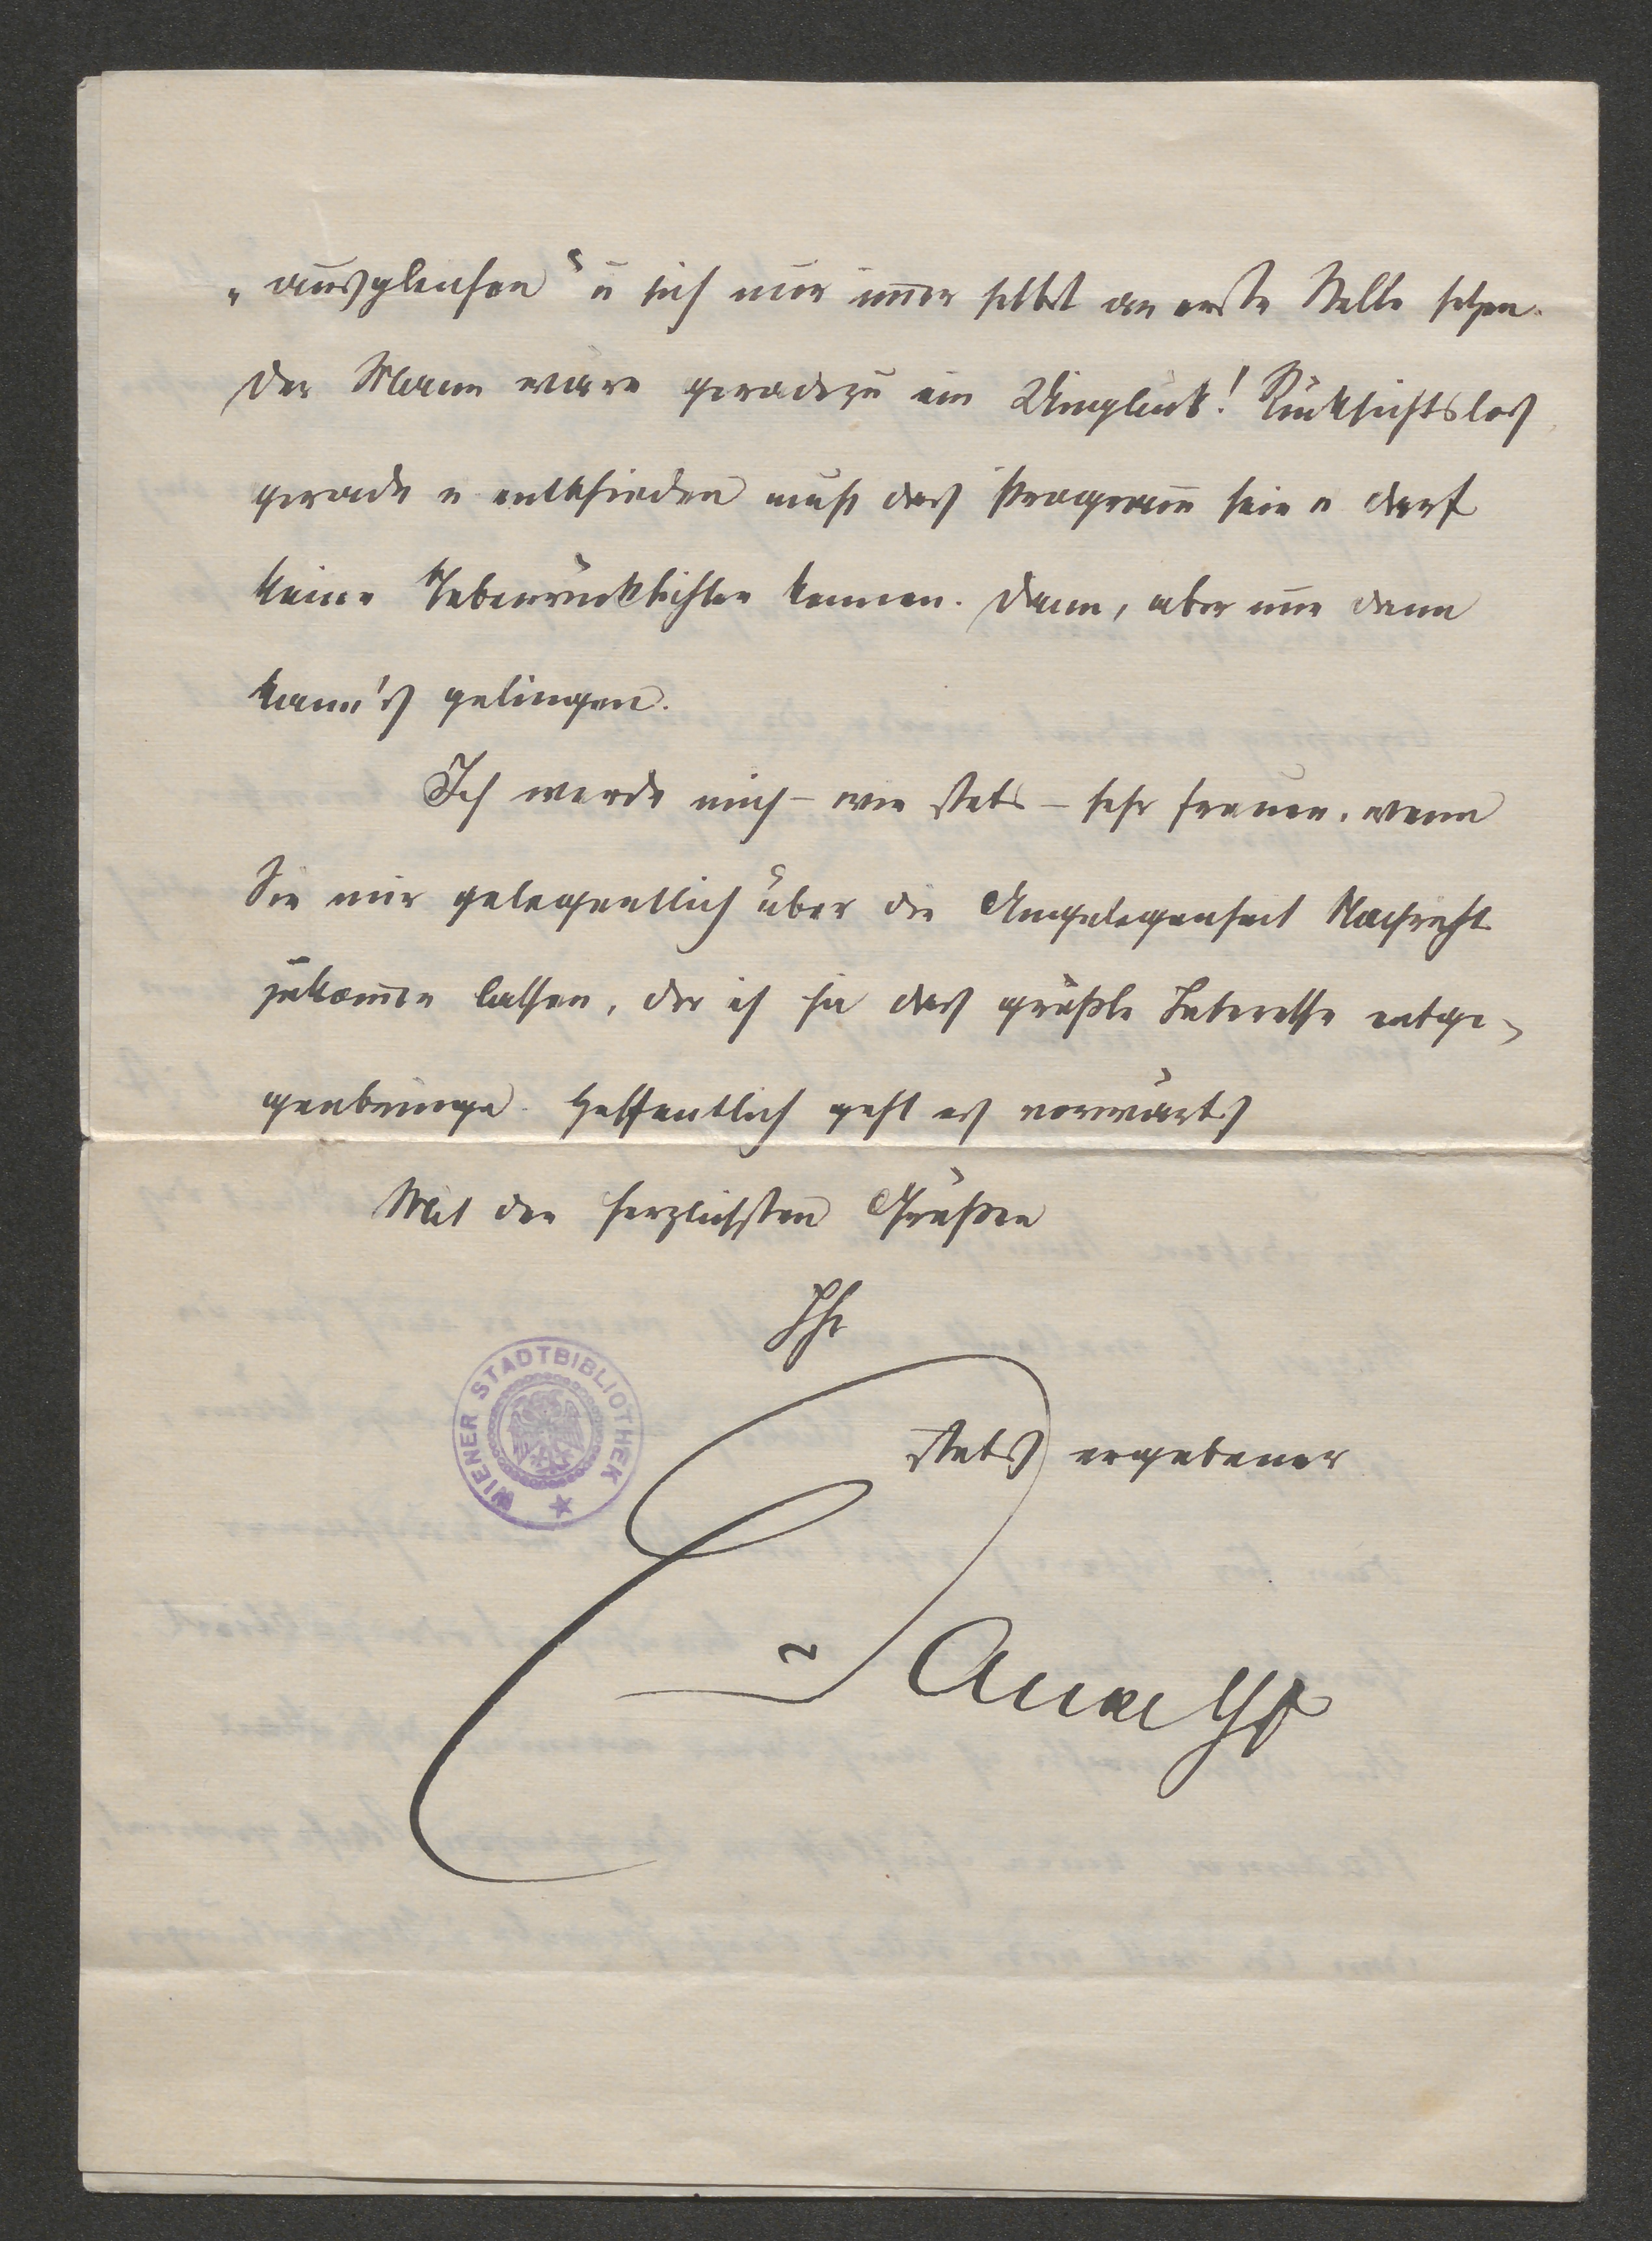 „ausgleichen“ u sich nur im̅er selbst an erste Stelle setzen.
Der Mann wäre geradezu ein Unglück! Rücksichtslos
gerade u entschieden muß das Program̅ sein u darf
keine Nebenrücksichten kennen. Dann, aber nur dann
kann's gelingen.
Ich werde mich – wie stets – sehr freuen, wenn
Sie mir gelegentlich über die Angelegenheit Nachricht
zukom̅en lassen, der ich ja das größte Interesse entge-
genbringe. Hoffentlich geht es vorwärts
Mit den herzlichsten Grüßen
Ihr
stets ergebener
WIENER STADTBIBLIOTHEK